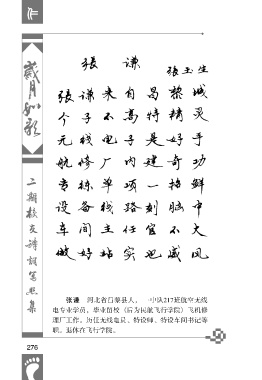 作
岁月如歌
二期校友诗词写照集
张 谦
张玉生
张谦来自昌黎城
个子不高特精灵
无线电子是好手
航修厂内建奇功
专练单项一招鲜
设备线路刻脑中
车间主任官不大
做好站实也威风
张谦 河北省昌黎县人，一中队217班航空无线
电专业学员，毕业留校（后为民航飞行学院）飞机修
理厂工作，历任无线电员、特设师、特设车间书记等
职。退休在飞行学院。
276